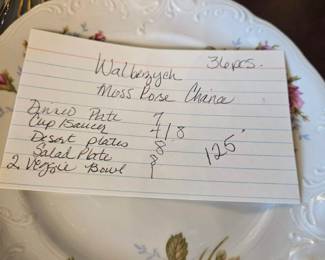 36 pcs.
Walbezych
Moss Rose China
Dinner Plate 7
Cup/Saucer 4/8
Desert plates 8
Salad Plate 8
2 Veggie Bowl 1
125.